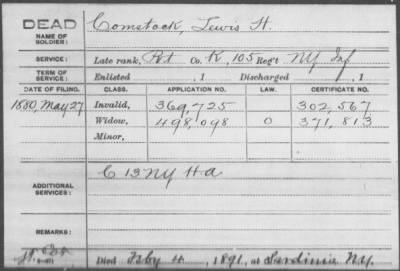 DEAD
NAME OF SOLDIER: Comstock, Lewis H.
SERVICE: Late rank, Pvt Co. K, 105 Reg't NY Inf
TERM OF SERVICE: Enlisted , 1 Discharged , 1
DATE OF FILING. CLASS. APPLICATION NO. LAW. CERTIFICATE NO.
1880, May 27 Invalid, 369,725 302,567
Widow, 498,098 0 371,813
Minor,
ADDITIONAL SERVICES: C 13 NY H A
REMARKS:
Died Feby 4, 1891, at Sardinia NY.